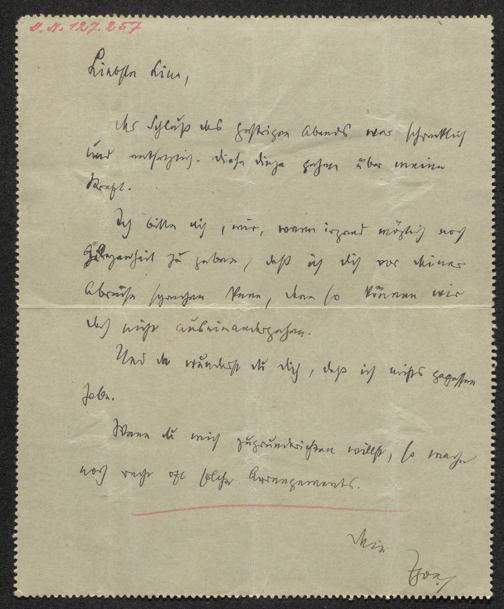 H.N. 127.257
Liebste Lina,
Der Schluß des gestrigen Abends war schrecklich
und entsetzlich. Diese Dinge gehen über meine
Kraft.
Ich bitte dich, mir, wenn irgend möglich noch
Gelegenheit zu geben, daß ich dich vor deiner
Abreise sprechen kann, denn so können wir
doch nicht auseinandergehen.
Und da wunderst du dich, daß ich nichts gegessen
habe.
Wenn du mich zugrunderichten willst, so mache
noch recht oft solche Arrangements.
Dein